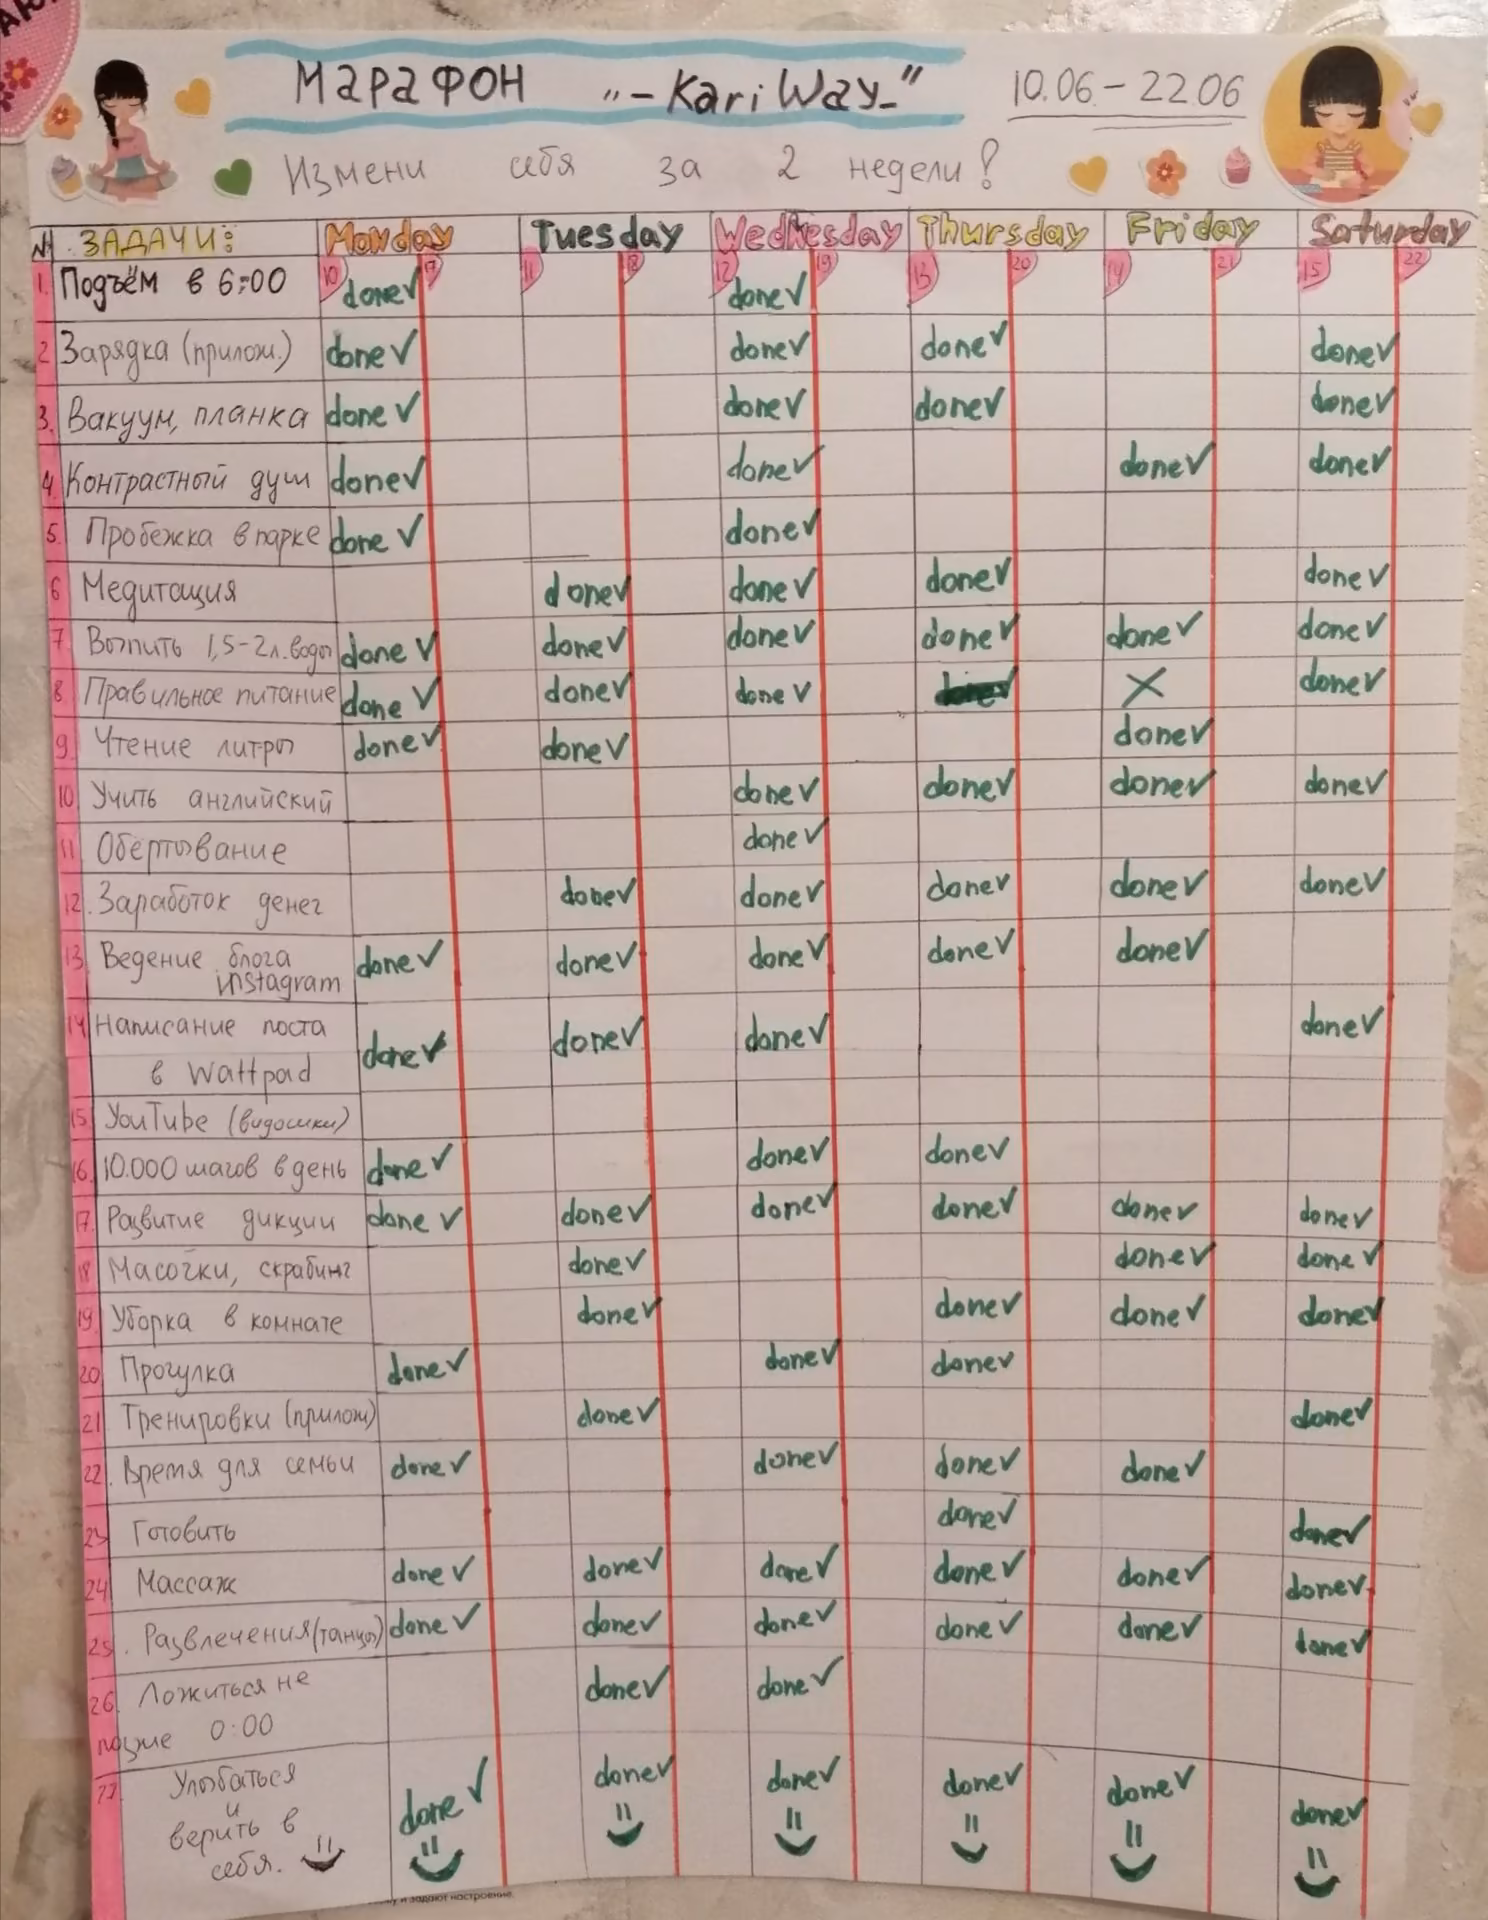 Марафон „-Kari Way-" 10.06 - 22.06
Измени себя за 2 недели!
№ ЗАДАЧИ: Monday Tuesday Wednesday Thursday Friday Saturday
10 17 11 18 12 19 13 20 14 21 15 22
1. Подъём в 6:00 done✓ done✓
2 Зарядка (прилож.) done✓ done✓ done✓ done✓
3. Вакуум, планка done✓ done✓ done✓ done✓
4. Контрастный душ done✓ done✓ done✓ done✓
5. Пробежка в парке done✓ done✓
6 Медитация done✓ done✓ done✓ done✓
7. Выпить 1,5-2л. воды done✓ done✓ done✓ done✓ done✓ done✓
8 Правильное питание done✓ done✓ done✓ X done✓
9. Чтение литры done✓ done✓ done✓
10 Учить английский done✓ done✓ done✓ done✓
11 Обёртывание done✓
12. Заработок денег done✓ done✓ done✓ done✓ done✓
13 Ведение блога done✓ done✓ done✓ done✓ done✓
instagram
14 Написание поста done✓ done✓ done✓ done✓
в Wattpad
15 YouTube (видосики)
16. 10.000 шагов в день done✓ done✓ done✓
17. Развитие дикции done✓ done✓ done✓ done✓ done✓ done✓
18 Масочки, скрабинг done✓ done✓ done✓
19. Уборка в комнате done✓ done✓ done✓ done✓
20 Прогулка done✓ done✓ done✓
21 Тренировки (прилож) done✓ done✓
22. Время для семьи done✓ done✓ done✓ done✓
23 Готовить done✓ done✓
24 Массаж done✓ done✓ done✓ done✓ done✓ done✓
25. Развлечения (танцы) done✓ done✓ done✓ done✓ done✓ done✓
26. Ложиться не done✓ done✓
позже 0:00
27 Улыбаться done✓ done✓ done✓ done✓ done✓ done✓
и
верить в
себя.
и задают настроение.